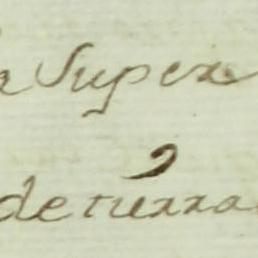 Super
de tierra